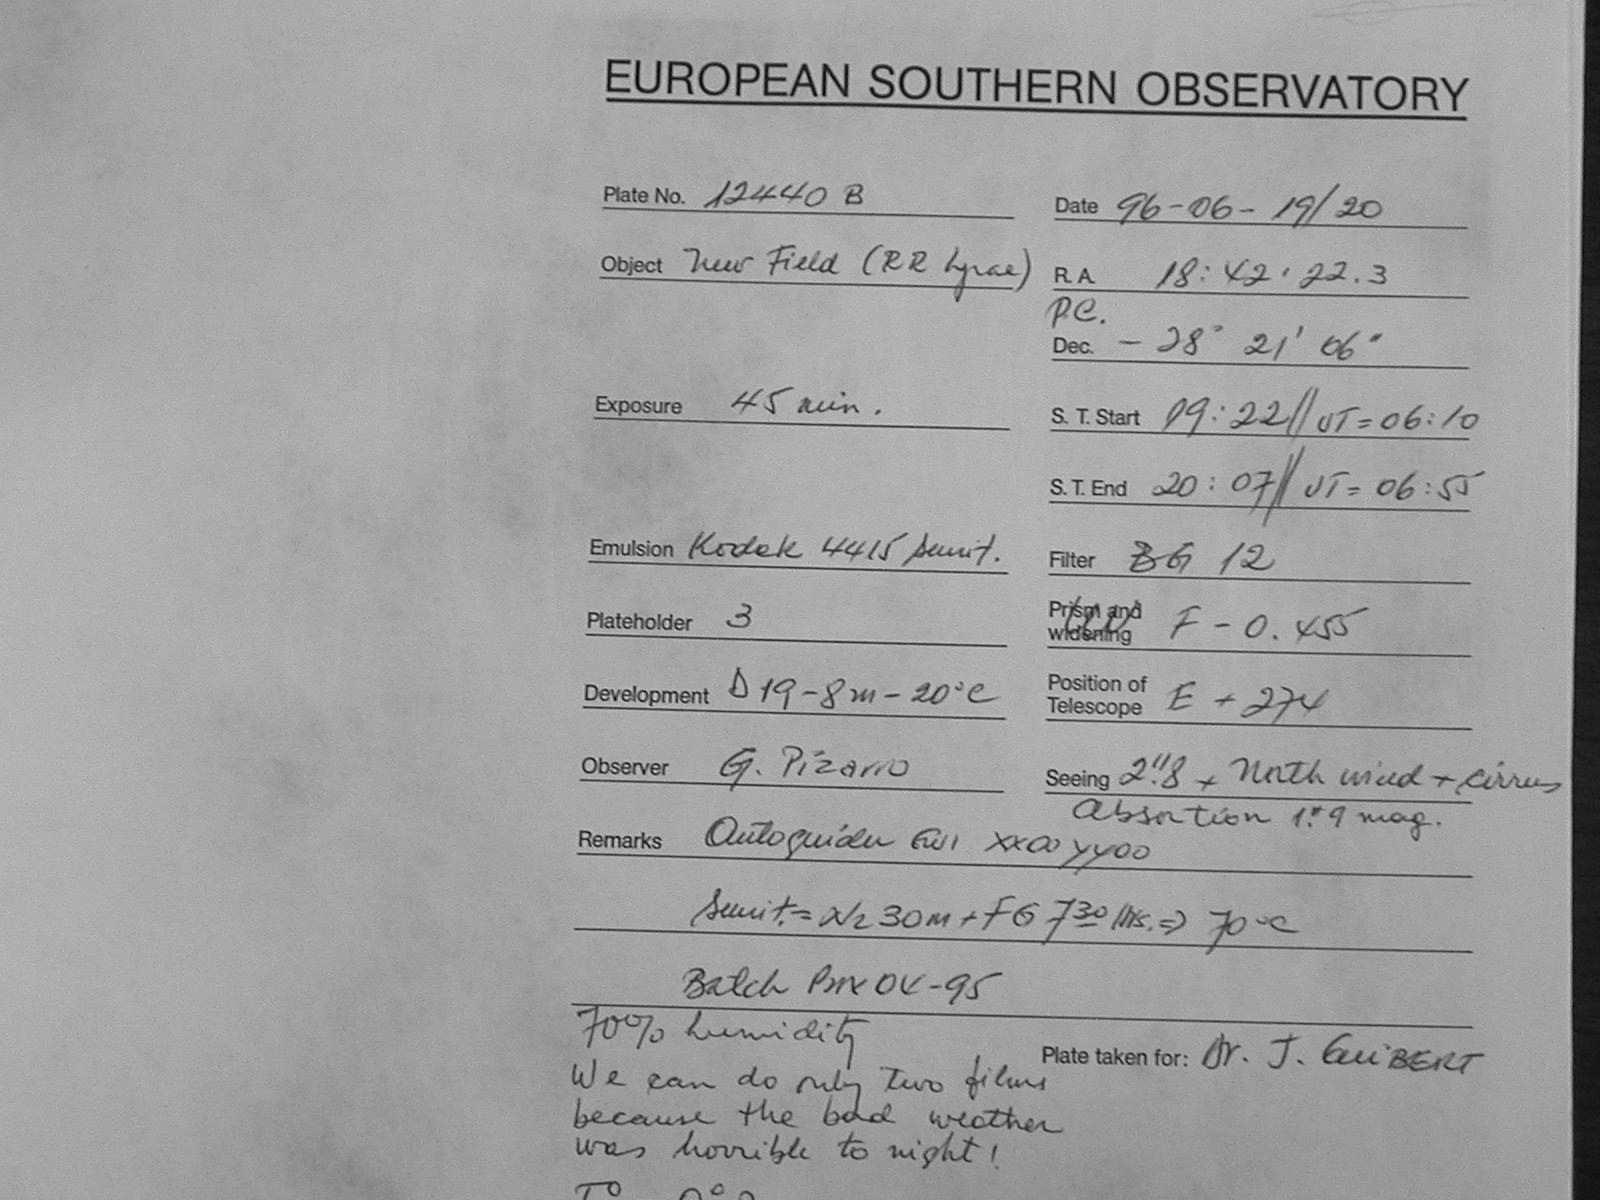 EUROPEAN SOUTHERN OBSERVATORY
Plate No. 12440 B
Date 96-06-19/20
Object New Field (RR Lyrae)
R.A. 18:42:22.3
P.C.
Dec. - 28° 21' 06"
Exposure 45 min.
S. T. Start 19:22 // UT = 06:10
S. T. End 20:07 // UT = 06:55
Emulsion Kodak 4415 sensit.
Filter BG 12
Plateholder 3
Prism and widening F - 0.455
Development D19-8m-20°C
Position of Telescope E + 274
Observer G. Pizarro
Seeing 2".8 + North wind + cirrus
Absortion 1.9 mag.
Remarks Autoguider XX00 YY00
Sensit. = N2 30m + FG 7 30 hrs. => 70°C
Batch 04-95
70% humidity
Plate taken for: Dr. J. GUIBERT
We can do only two films
because the bad weather
was horrible to night!